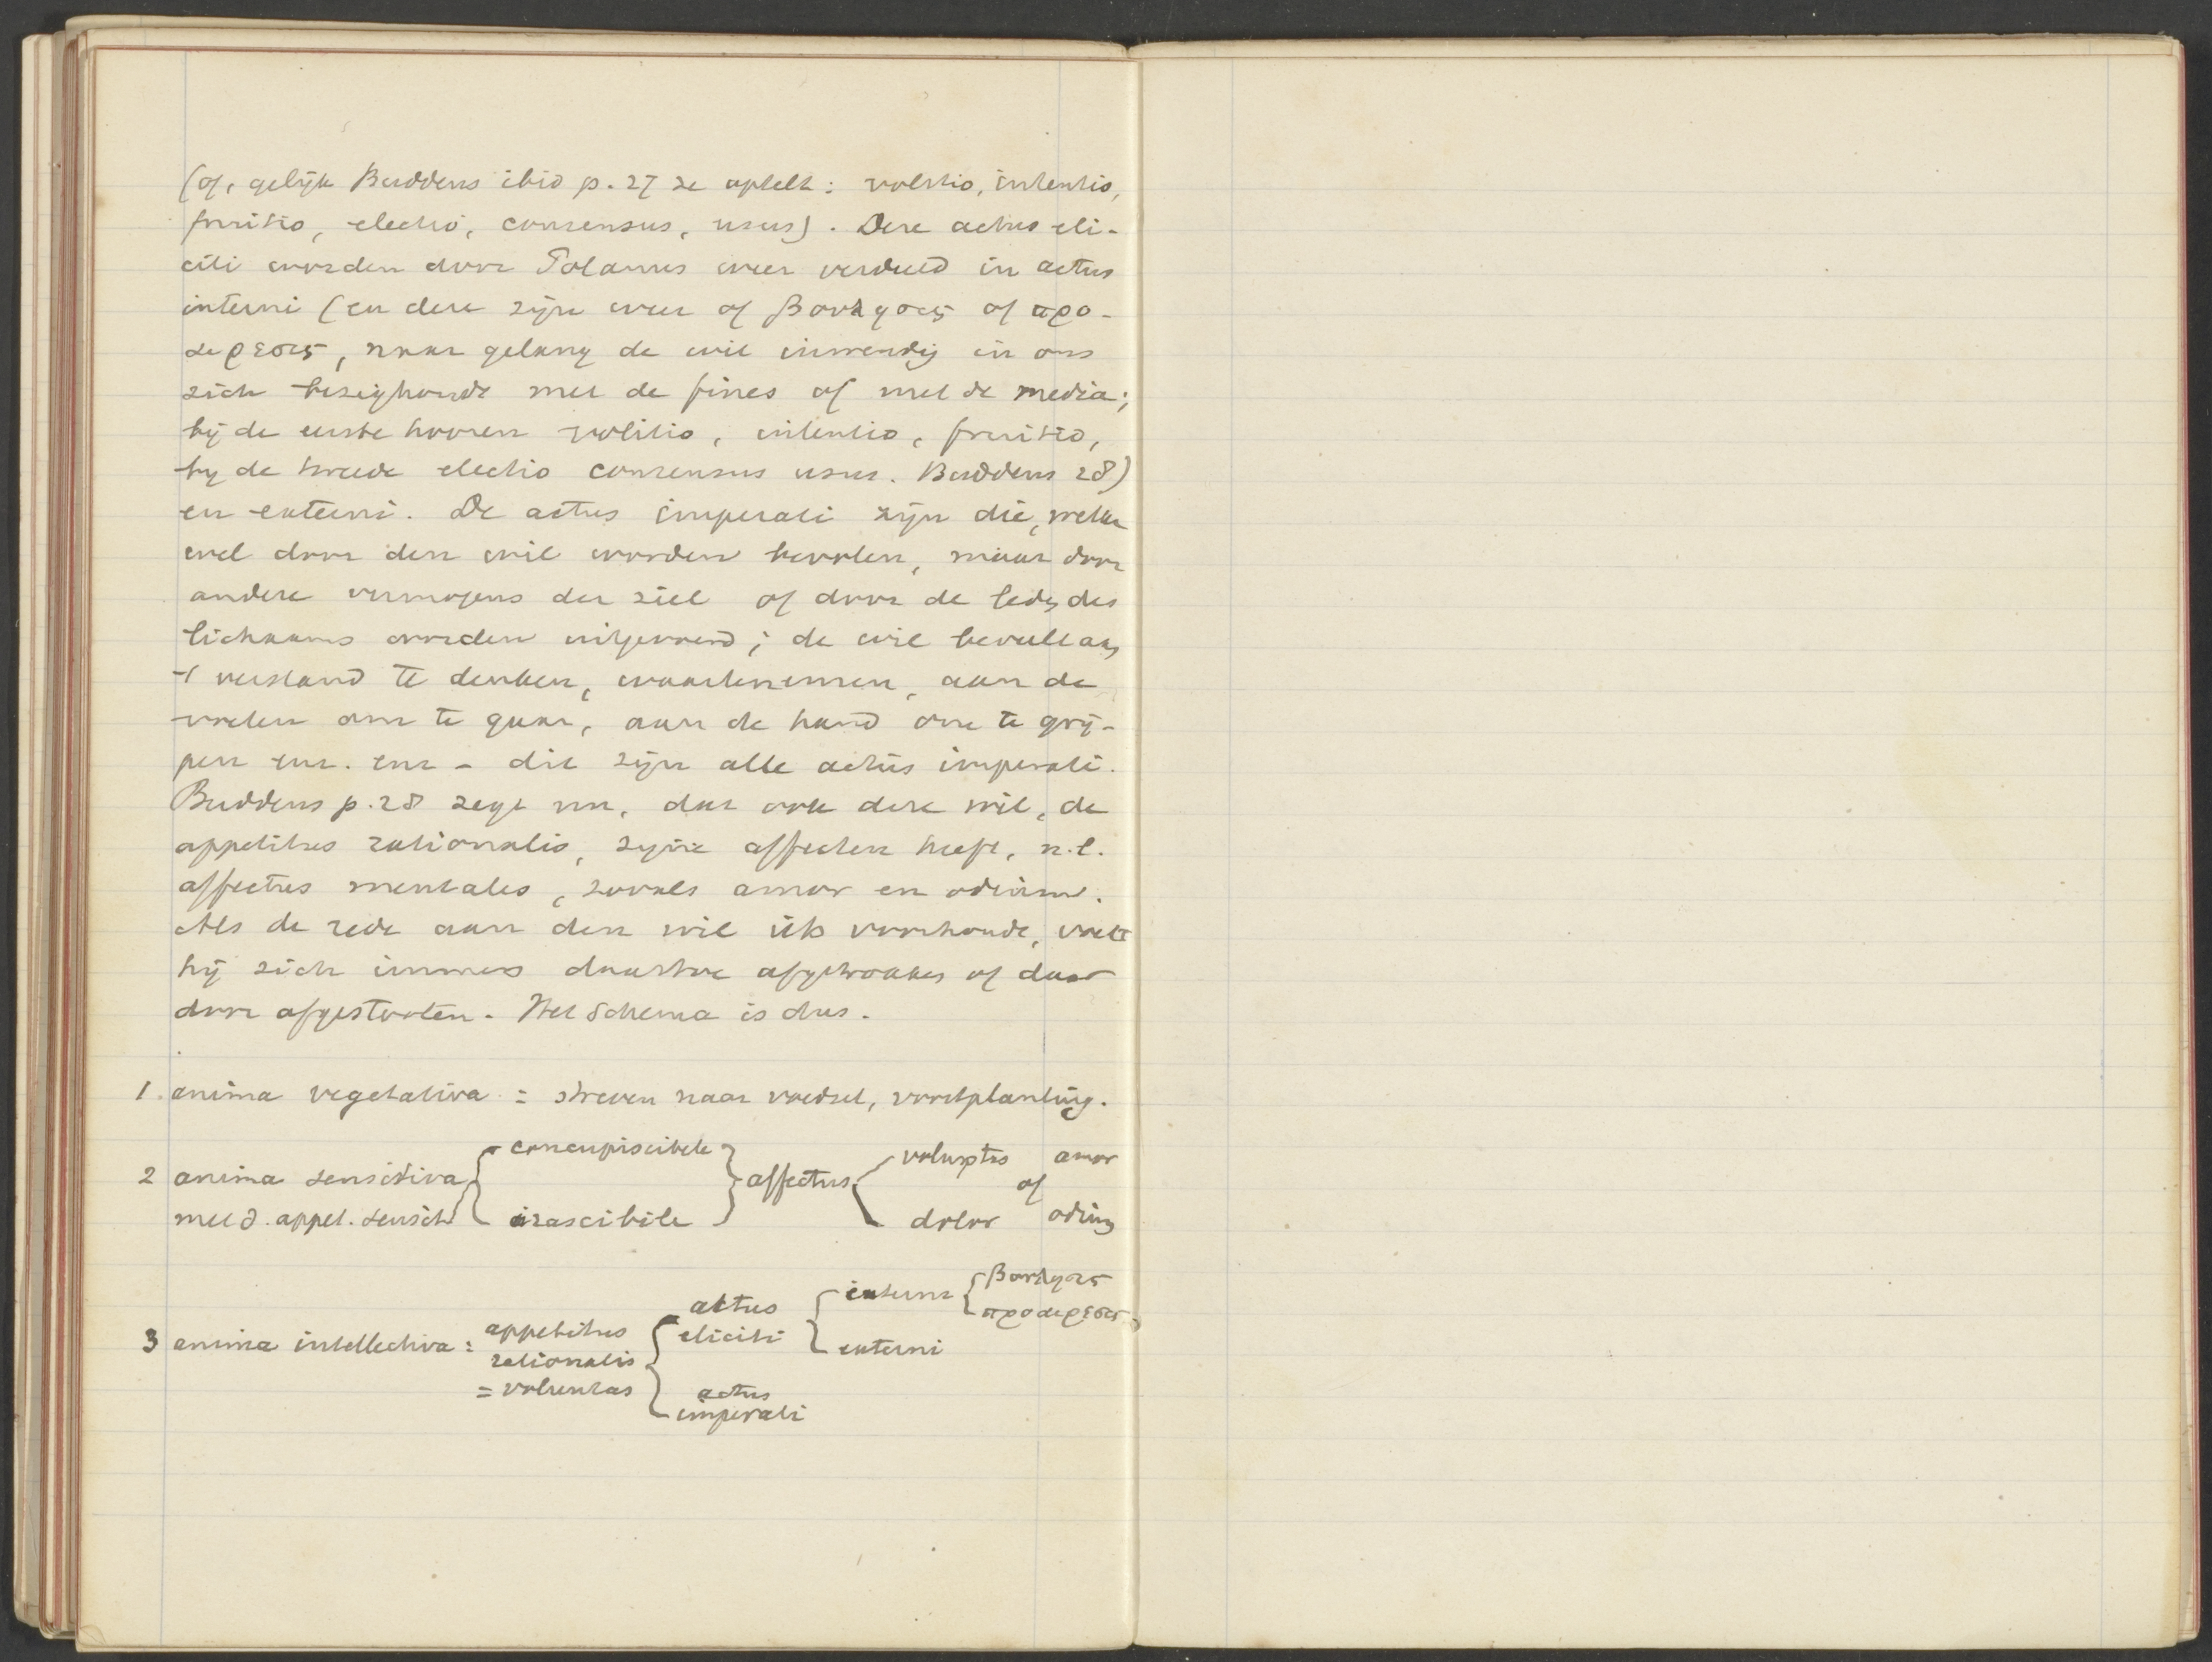 (of, gelijk Buddeus ibid p. 27 ze optelt: volitio, intentio,
fruitio, electio, consensus, usus). Deze actus eli-
citi worden door Polanus weer verdeeld in actus
interni (en deze zijn weer of βουλησις of προ-
αιρεσις, naar gelang de wil inwendig in ons
zich bezighoudt met de fines of met de media;
bij de eerste hooren volitio, intentio, fruitio,
bij de tweede electio consensus usus. Buddeus 28)
en externi. De actus imperati zijn die, welke
wel door den wil worden bevolen, maar door
andere vermogens der ziel of door de leden des
lichaams worden uitgevoerd; de wil beveelt aan
't verstand te denken, waartenemen, aan de
voeten om te gaan, aan de hand om te grij-
pen enz. enz - dit zijn alle actus imperati.
Buddeus p. 28 zegt nu, dat ook deze wil, de
appetitus rationalis, zijne affecten heeft, n.l.
affectus mentales, zooals amor en odium.
Als de rede aan den wil iets voorhoudt, voelt
hij zich immers daartoe afgetrokken of daar
door afgestooten. Het Schema is dus.
1. anima vegetativa = streven naar voedsel, voortplanting.
2 anima sensitiva { concupiscibile } affectus { voluptas amor
of
met d. appet. sensit. irascibile dolor odium
3 anima intellectiva = appetitus rationalis = voluntas
{ actus eliciti { interni { βουλησις
προαιρεσις
externi
actus imperati